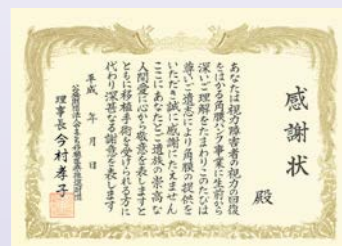 感謝状
殿
あなたは視力障害者の視力の回復
をはかる角膜バンク事業に生前から
深いご理解をたまわりこのたびは
尊いご遺志により角膜の提供を
いただき誠に感謝にたえません
ここにあなたとご遺族の崇高な
人間愛に心から敬意を表しますと
ともに移植手術を受けられる方に
代わり深甚なる謝意を表します
平成 年 月 日
理事長 今村孝子